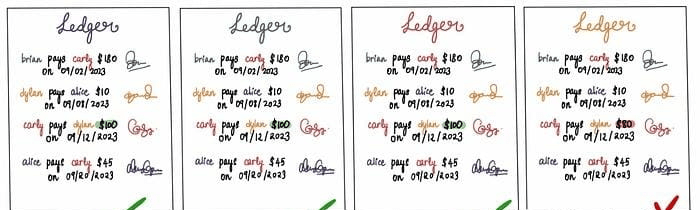 Ledger
brian pays carly $180
on 09/02/2023
dylan pays alice $10
on 09/08/2023
carly pays dylan $100
on 09/12/2023
alice pays carly $45
on 09/20/2023
Ledger
brian pays carly $180
on 09/02/2023
dylan pays alice $10
on 09/08/2023
carly pays dylan $100
on 09/12/2023
alice pays carly $45
on 09/20/2023
Ledger
brian pays carly $180
on 09/02/2023
dylan pays alice $10
on 09/08/2023
carly pays dylan $100
on 09/12/2023
alice pays carly $45
on 09/20/2023
Ledger
brian pays carly $180
on 09/02/2023
dylan pays alice $10
on 09/08/2023
carly pays dylan $80
on 09/12/2023
alice pays carly $45
on 09/20/2023